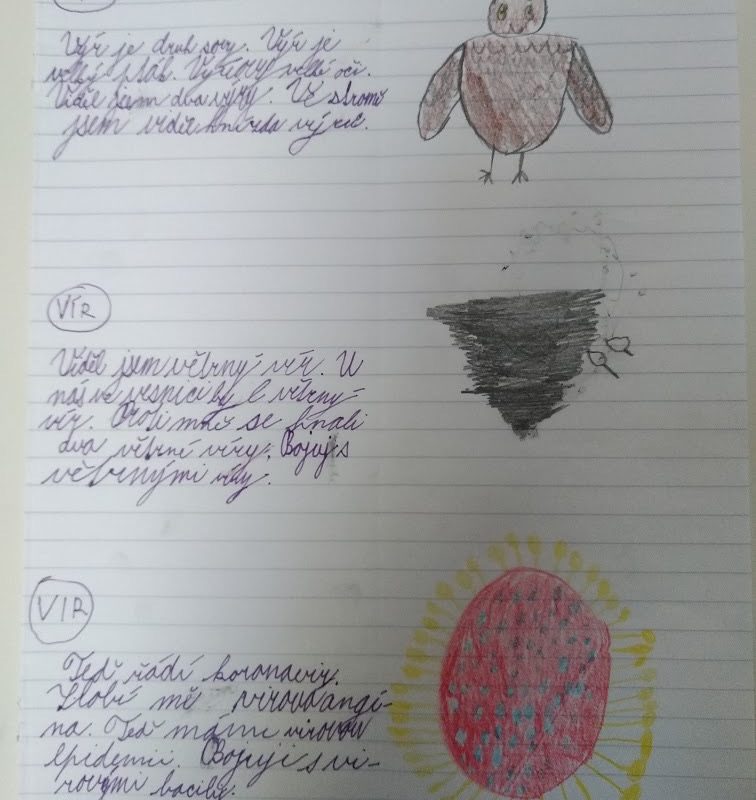 Výr je druh sovy. Výr je
velký pták. Výr velké oči.
Viděl jsem dva výry. Ve stromě
jsem viděl hnízda výrů.
VÍR
Viděl jsem větrný vír. U
nás ve vesnici byl větrný
vír. Proti mně se hnali
dva větrné víry. Bojuj s
větrnými víry.
VIR
Teď řádí koronaviry.
Zlobí mě virová angí-
na. Teď máme virovou
epidemii. Bojuji s vi-
rovými bacily.